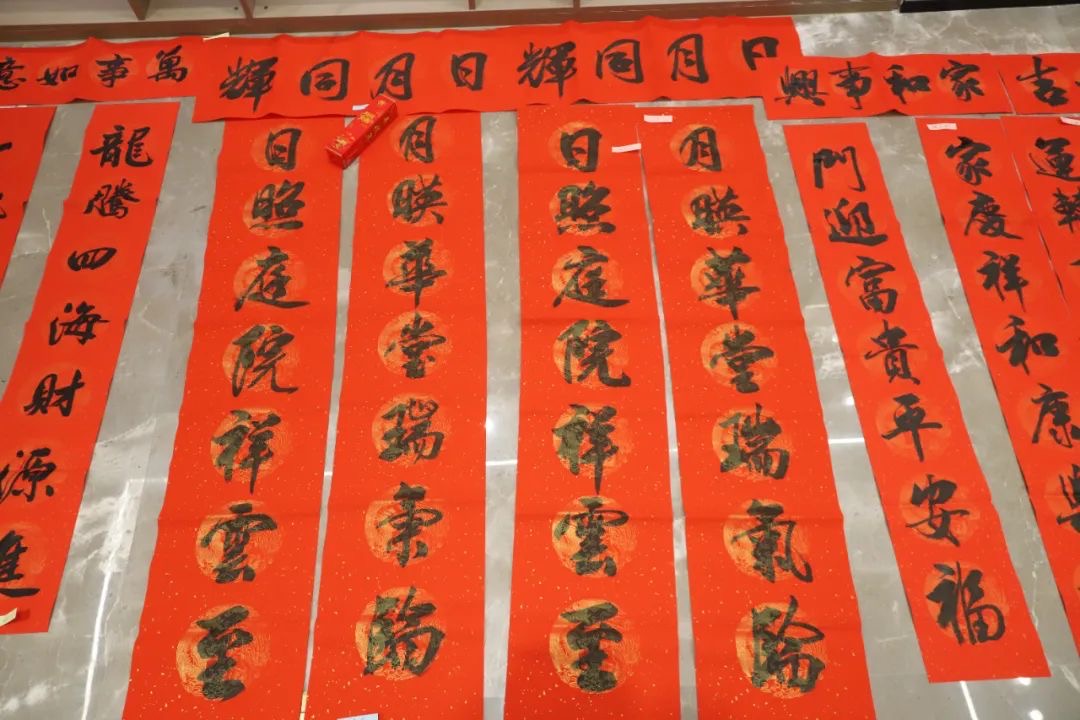 意如事萬
輝同月日
輝同月日
興事和家
吉
龍騰四海財源進
日照庭院祥雲至
月暎華堂瑞氣臨
日照庭院祥雲至
月暎華堂瑞氣臨
門迎富貴平安福
家慶祥和康
運轉